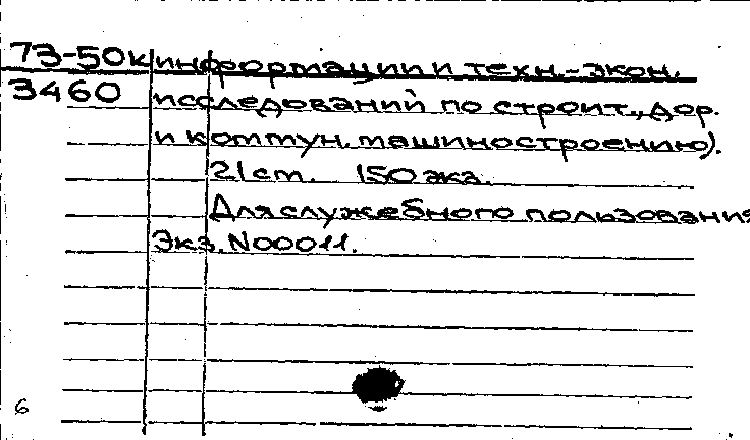 73-50к информации и техн.-экон.
3460 исследований по строит., дор.
и коммун. машиностроению).
21 ст. 150 экз.
Для служебного пользования
Экз. N00011.
6